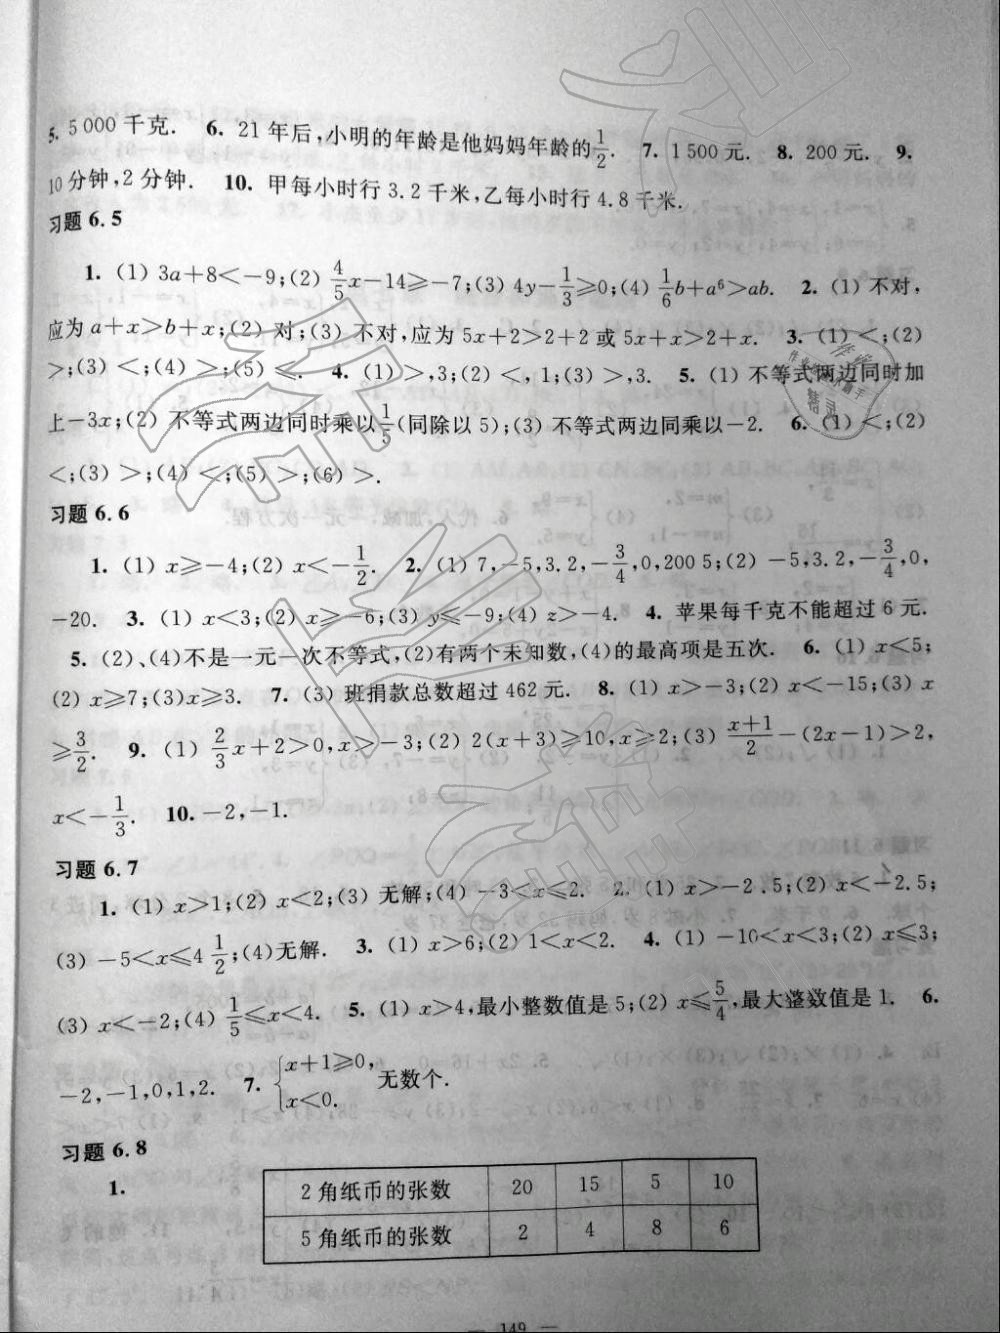 5. 5 000 千克. 6. 21 年后,小明的年龄是他妈妈年龄的1/2. 7. 1 500 元. 8. 200 元. 9.
10 分钟,2 分钟. 10. 甲每小时行 3.2 千米,乙每小时行 4.8 千米.
习题 6.5
1. (1) 3a+8<-9;(2) 4/5x-14≥-7;(3) 4y-1/3≥0;(4) 1/6b+a⁶>ab. 2. (1) 不对,
应为 a+x>b+x;(2) 对;(3) 不对,应为 5x+2>2+2 或 5x+x>2+x. 3. (1) <;(2)
>;(3) <;(4) >;(5) ≤. 4. (1) >,3;(2) <,1;(3) >,3. 5. (1) 不等式两边同时加
上-3x;(2) 不等式两边同时乘以1/5(同除以 5);(3) 不等式两边同乘以-2. 6. (1) <;(2)
<;(3) >;(4) <;(5) >;(6) >.
习题 6.6
1. (1) x≥-4;(2) x<-1/2. 2. (1) 7,-5,3.2,-3/4,0,200 5;(2) -5,3.2,-3/4,0,
-20. 3. (1) x<3;(2) x≥-6;(3) y≤-9;(4) z>-4. 4. 苹果每千克不能超过 6 元.
5. (2)、(4)不是一元一次不等式,(2)有两个未知数,(4)的最高项是五次. 6. (1) x<5;
(2) x≥7;(3)x≥3. 7. (3) 班捐款总数超过 462 元. 8. (1) x>-3;(2) x<-15;(3) x
≥3/2. 9. (1) 2/3x+2>0,x>-3;(2) 2(x+3)≥10,x≥2;(3) (x+1)/2-(2x-1)>2,
x<-1/3. 10. -2,-1.
习题 6.7
1. (1) x>1;(2) x<2;(3) 无解;(4) -3<x≤2. 2. (1) x>-2.5;(2) x<-2.5;
(3) -5<x≤4 1/2;(4)无解. 3. (1) x>6;(2) 1<x<2. 4. (1) -10<x<3;(2) x≤3;
(3) x<-2;(4) 1/5≤x<4. 5. (1) x>4,最小整数值是 5;(2) x≤5/4,最大整数值是 1. 6.
-2,-1,0,1,2. 7. {x+1≥0, x<0. 无数个.
习题 6.8
1.
2 角纸币的张数 20 15 5 10
5 角纸币的张数 2 4 8 6
— 149 —